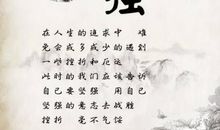 强
在人生的追求中 难
免会或多或少的遇到
一些挫折和厄运
此时的我们应该告诉
自己要坚强 用自己
坚强的意志去战胜
挫折 毫不气馁